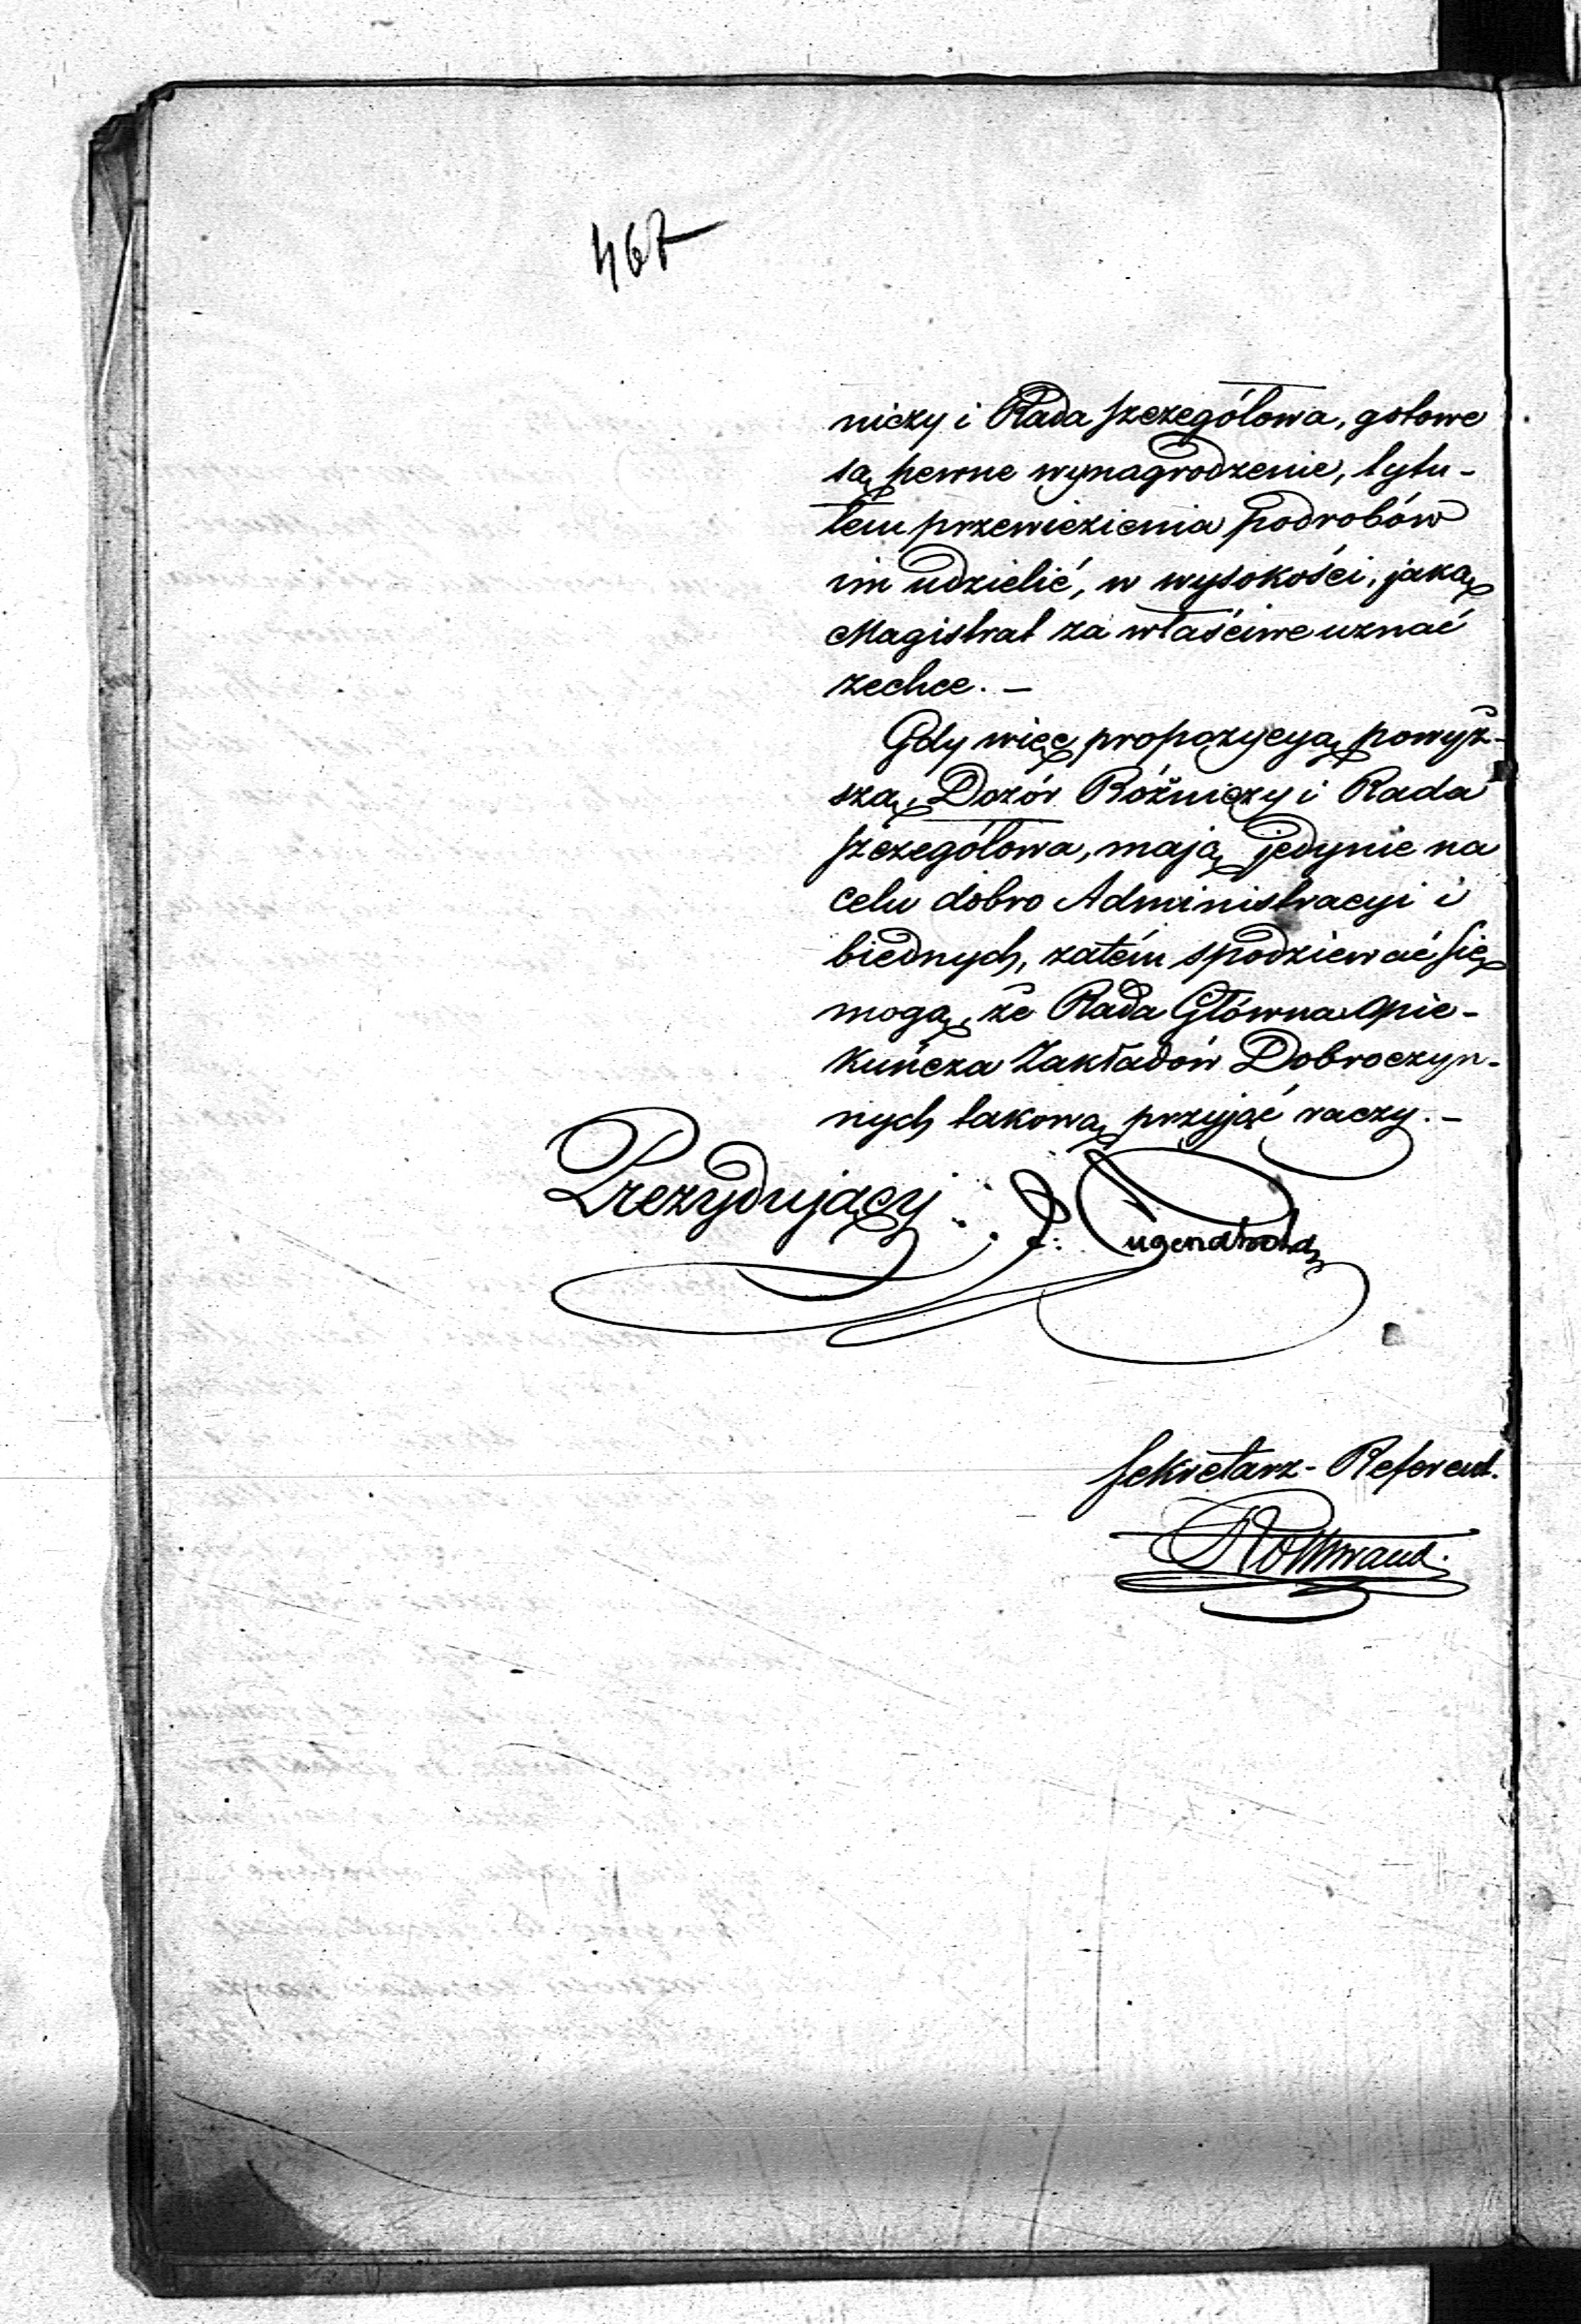 467
niczy i Rada szczegółowa, gotowe
są pewne wynagrodzenie, tytu-
łem przewiezienia podrobów
im udzielić, w wysokości, jaką
Magistrat za właściwe uznać
zechce. —
Gdy więc propozycyą powyż-
szą, Dozór Bóżniczy i Rada
szczegółowa, mają jedynie na
celu dobro Administracyi i
biednych, zatém spodziewać się
mogą, że Rada Główna Opie-
kuńcza Zakładów Dobroczyn-
nych takową przyjąć raczy. —
Prezydujący J. Tugendhold
Sekretarz-Referent.